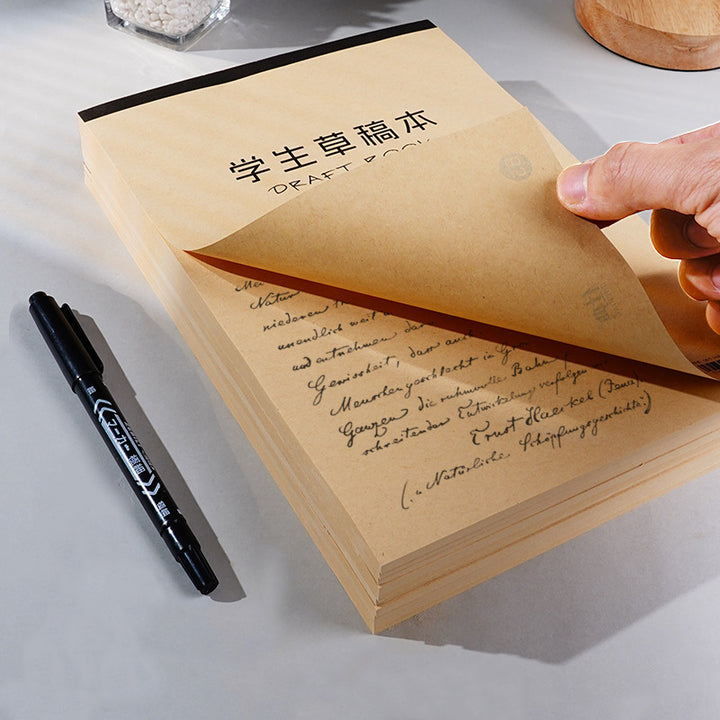 学生草稿本
DRAFT BOOK
Natur
niederen
unendlich weit
und entnehmen
Gewissheit, dass auch
Menschengeschlecht in
Ganzen die ruhmvolle Bahn
schreitender Entwickelung verfolgen
Ernst Haeckel (Jena)
(„Natürliche Schöpfungsgeschichte“)
マーカー 極細